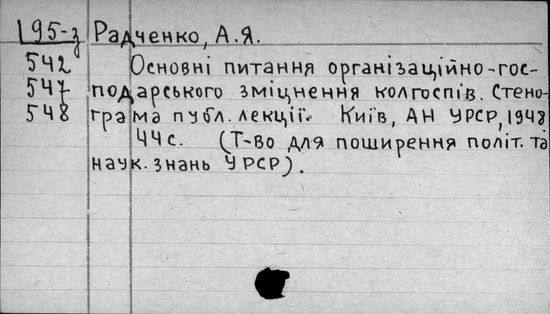 195-з Радченко, А.Я.
542 Основні питання організаційно-гос-
547 подарського зміцнення колгоспів. Стено-
548 грама публ. лекції. Київ, АН УРСР, 1948
44с. (Т-во для поширення політ. та
наук. знань УРСР).